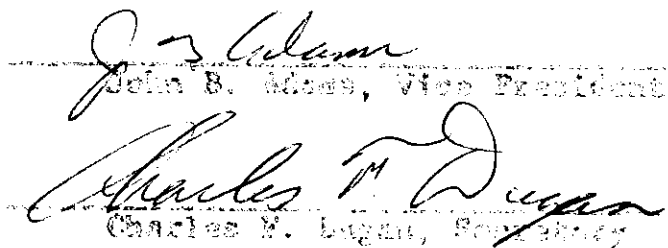 J B Adams
John B. Adams, Vice President
Charles M. Dugan
Charles M. Dugan, Secretary